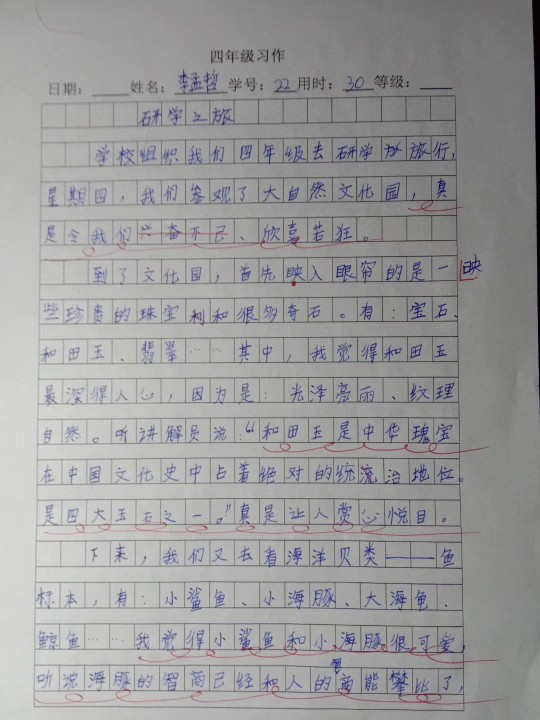 四年级习作
日期：姓名：李孟哲学号：22用时：30等级：
研学之旅
学校组织我们四年级去研学旅行，
星期四，我们参观了大自然文化园，真
是令我们兴奋不已、欣喜若狂。
到了文化园，首先映入眼帘的是一 映
些珍贵的珠宝和很多奇石。有：宝石、
和田玉、翡翠……其中，我觉得和田玉
最深得人心，因为是：光泽亮丽、纹理
自然。听讲解员说：“和田玉是中华瑰宝
在中国文化史中占着绝对的统治地位。
是四大玉石之一。”真是让人赏心悦目。
下来，我们又去看海洋贝类——鱼
标本，有：小鲨鱼、小海豚、大海龟、
鲸鱼……我觉得小鲨鱼和小海豚很可爱，
听说海豚的智商已经和人的能攀比了，